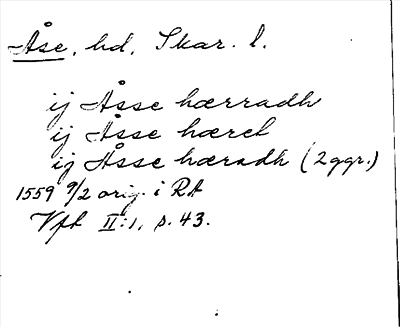 Åse, hd, Skar. l.
ij Åsse hærradh
ij Åsse hæret
ij Åsse hæradh (2 ggr.)
1559 9/2 orig. i RA
Vfth II:1, p. 43.